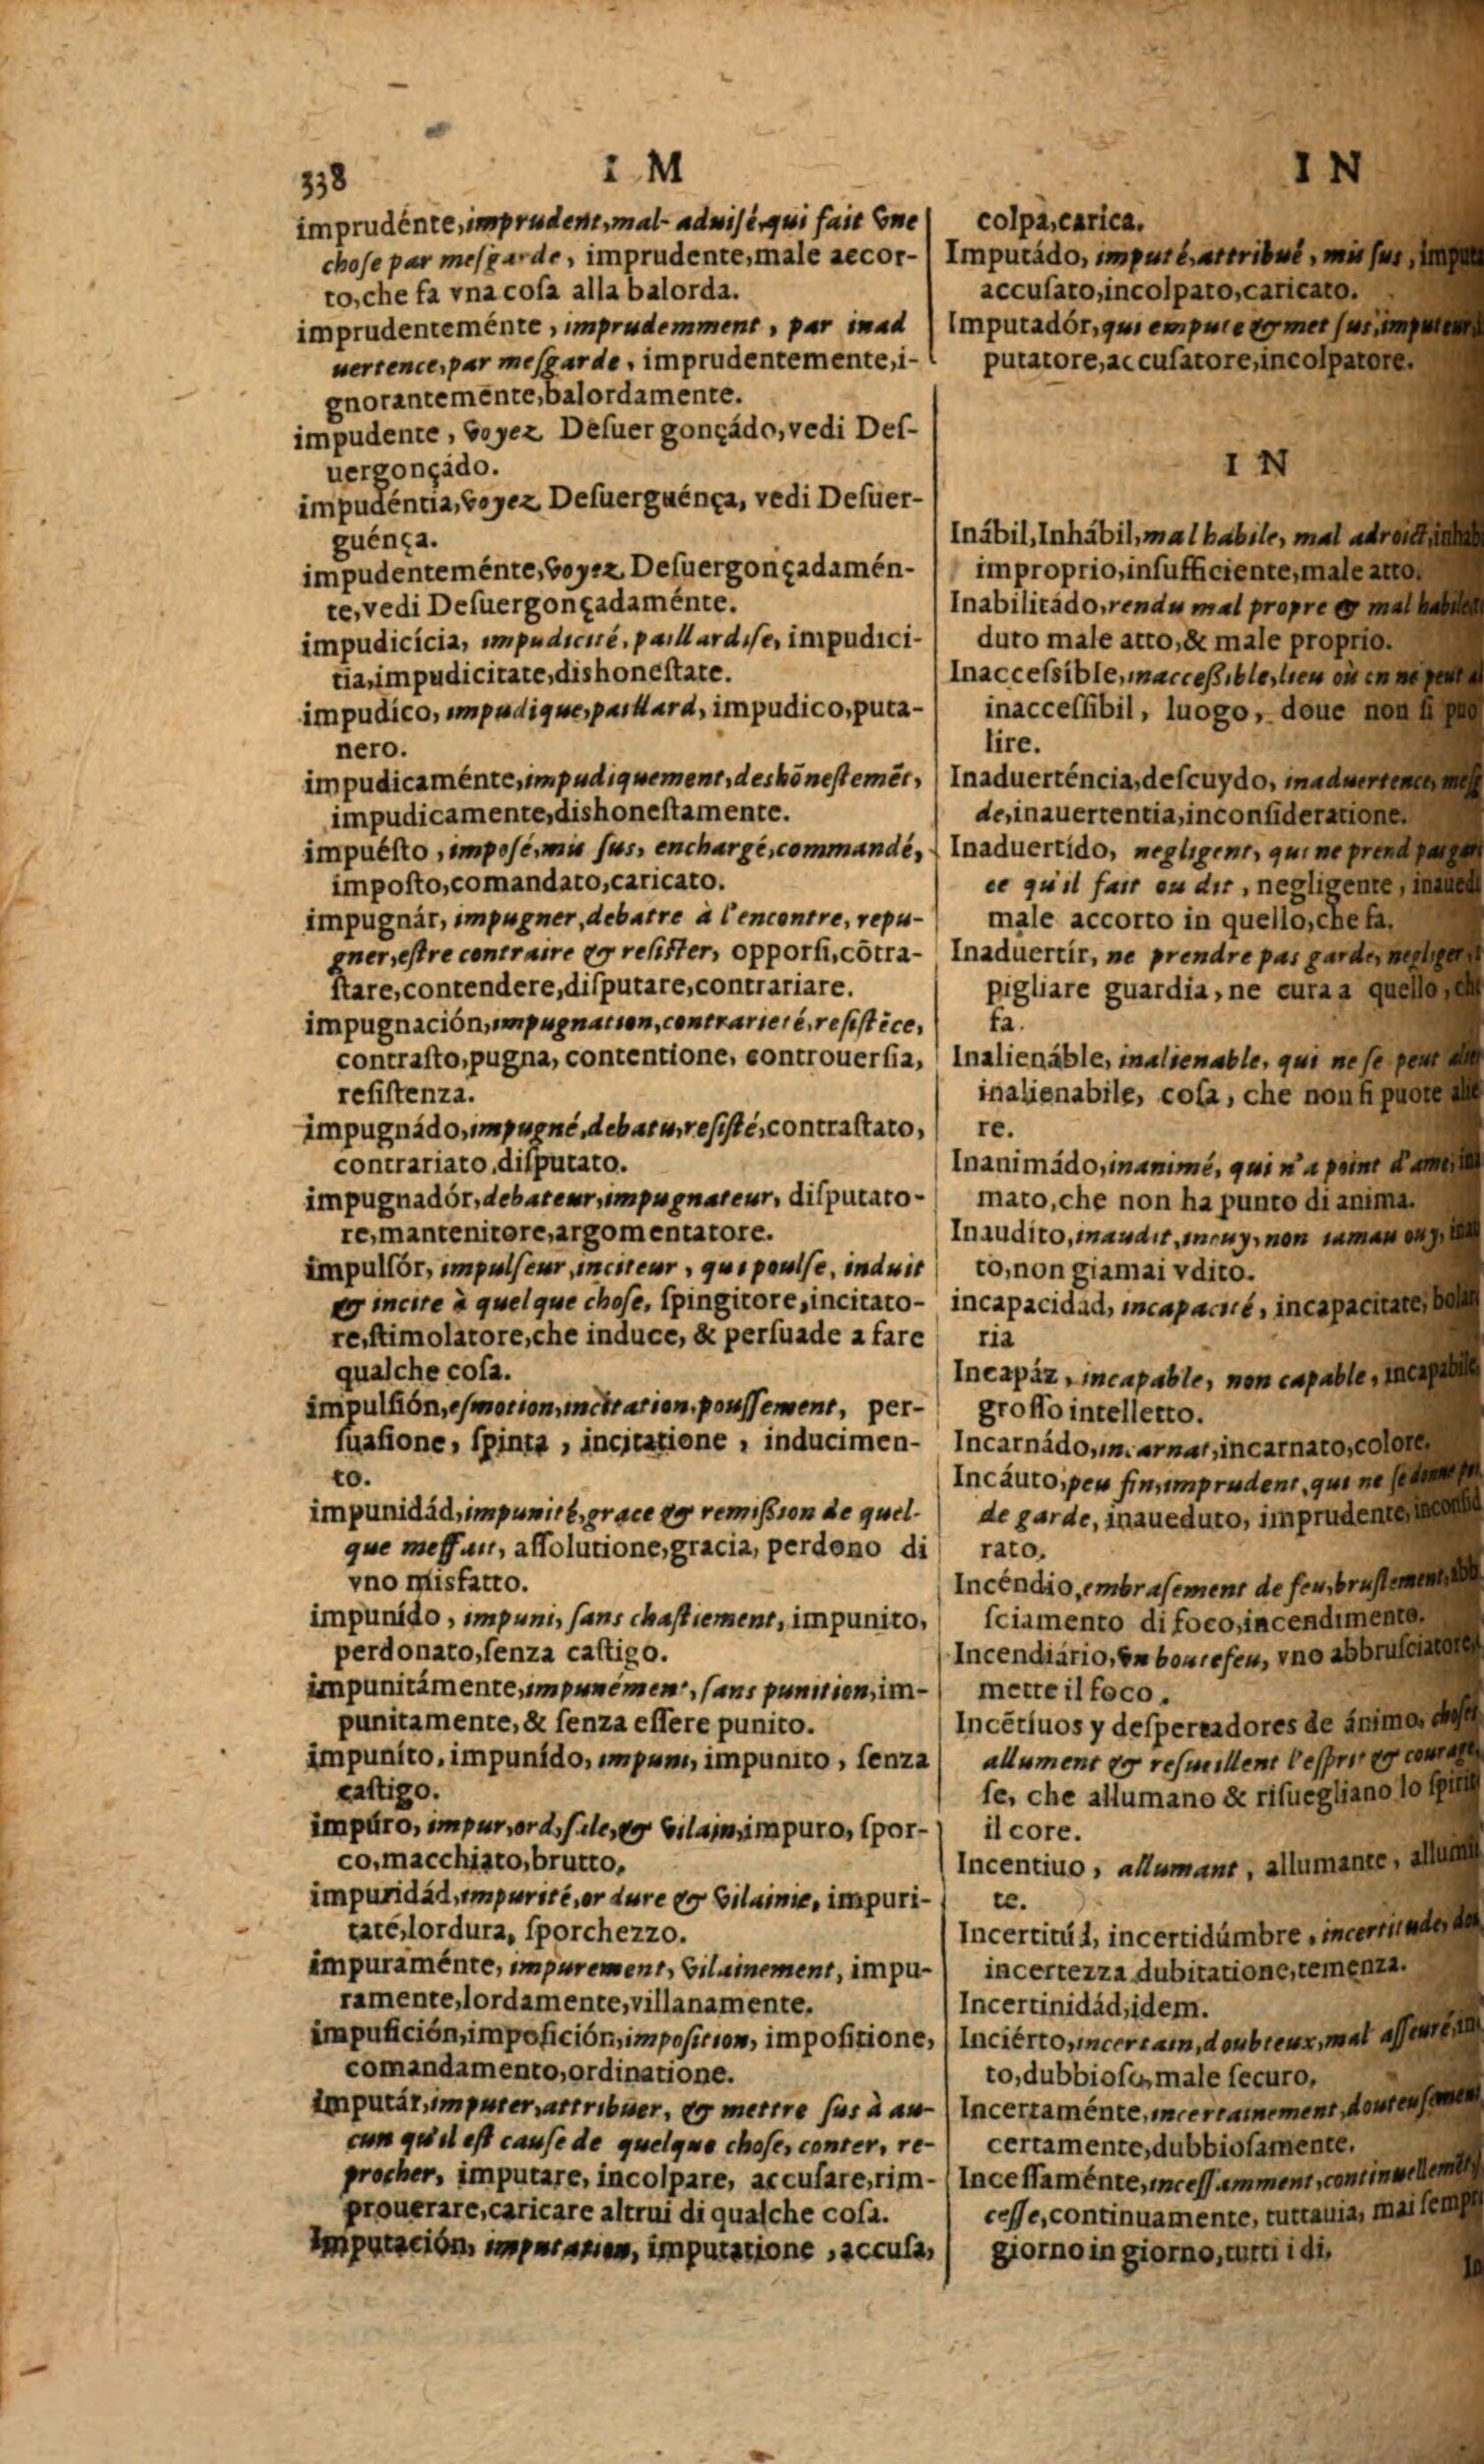 338
I M
imprudénte, imprudent, mal-aduisé, qui fait vne
chose par mesgarde, imprudente, male accor-
to, che fa vna cosa alla balorda.
imprudenteménte, imprudemment, par inad
uertence, par mesgarde, imprudentemente, i-
gnorantemēnte, balordamente.
impudente, voyez Desuergonçádo, vedi Des-
uergonçádo.
impudéntia, voyez Desuerguénça, vedi Desuer-
guénça.
impudenteménte, voyez Desuergonçadamén-
te, vedi Desuergonçadaménte.
impudicícia, impudicité, paillardise, impudici-
tia, impudicitate, dishonestate.
impudíco, impudique, paillard, impudico, puta-
nero.
impudicaménte, impudiquement, deshōnestemēt,
impudicamente, dishonestamente.
impuésto, imposé, mis sus, enchargé, commandé,
imposto, comandato, caricato.
impugnár, impugner, debatre à l'encontre, repu-
gner, estre contraire & resister, opporsi, cōtra-
stare, contendere, disputare, contrariare.
impugnación, impugnation, contrarieté, resistēce,
contrasto, pugna, contentione, controuersia,
resistenza.
impugnádo, impugné, debatu, resisté, contrastato,
contrariato, disputato.
impugnadór, debateur, impugnateur, disputato-
re, mantenitore, argomentatore.
impulsór, impulseur, inciteur, qui poulse, induit
& incite à quelque chose, spingitore, incitato-
re, stimolatore, che induce, & persuade a fare
qualche cosa.
impulsión, esmotion, incitation, poussement, per-
suasione, spinta, incitatione, inducimen-
to.
impunidád, impunité, grace & remission de quel-
que meffait, assolutione, gracia, perdono di
vno misfatto.
impunído, impuni, sans chastiement, impunito,
perdonato, senza castigo.
impunitámente, impunément, sans punition, im-
punitamente, & senza essere punito.
impuníto, impunído, impuni, impunito, senza
castigo.
impúro, impur, ord, sale, & vilain, impuro, spor-
co, macchiato, brutto,
impuridád, impurité, ordure & vilainie, impuri-
taté, lordura, sporchezzo.
impuraménte, impurement, vilainement, impu-
ramente, lordamente, villanamente.
impusición, imposición, imposition, impositione,
comandamento, ordinatione.
imputár, imputer, attribuer, & mettre sus à au-
cun qu'il est cause de quelque chose, conter, re-
procher, imputare, incolpare, accusare, rim-
prouerare, caricare altrui di qualche cosa.
Imputación, imputation, imputatione, accusa,
I N
colpa, carica.
Imputádo, imputé, attribué, mis sus,
accusato, incolpato, caricato.
Imputadór, qui empute & met sus,
putatore, accusatore, incolpatore.
I N
Inábil, Inhábil, mal habile, mal adroict,
improprio, insufficiente, male atto.
Inabilitádo, rendu mal propre & mal
duto male atto, & male proprio.
Inaccessible, inaccessible, lieu où on ne peut
inaccessibil, luogo, doue non si puo
lire.
Inaduerténcia, descuydo, inaduertence,
de, inauertentia, inconsideratione.
Inaduertído, negligent, qui ne prend pas
ce qu'il fait ou dit, negligente,
male accorto in quello, che fa.
Inaduertír, ne prendre pas garde, negliger,
pigliare guardia, ne cura a quello,
fa.
Inalienáble, inalienable, qui ne se peut
inalienabile, cosa, che non si puote
re.
Inanimádo, inanimé, qui n'a point d'ame,
mato, che non ha punto di anima.
Inaudito, inaudit, inouy, non iamais ouy,
to, non giamai vdito.
incapacidad, incapacité, incapacitate,
ria
Incapáz, incapable, non capable,
grosso intelletto.
Incarnádo, incarnat, incarnato, colore.
Incáuto, peu fin, imprudent, qui ne se donne
de garde, inaueduto, imprudente,
rato.
Incéndio, embrasement de feu, bruslement,
sciamento di foco, incendimento.
Incendiário, vn boutefeu, vno abbrusciatore,
mette il foco.
Incētiuos y despertadores de ánimo,
allument & resueillent l'esprit & courage,
se, che allumano & risuegliano lo
il core.
Incentiuo, allumant, allumante,
te.
Incertitúd, incertidúmbre, incertitude,
incertezza, dubitatione, temenza.
Incertinidád, idem.
Inciérto, incertain, doubteux, mal asseuré,
to, dubbioso, male securo.
Incertaménte, incertainement,
certamente, dubbiosamente.
Incessaménte, incessamment,
cesse, continuamente, tuttauia, mai
giorno in giorno, tutti i di.